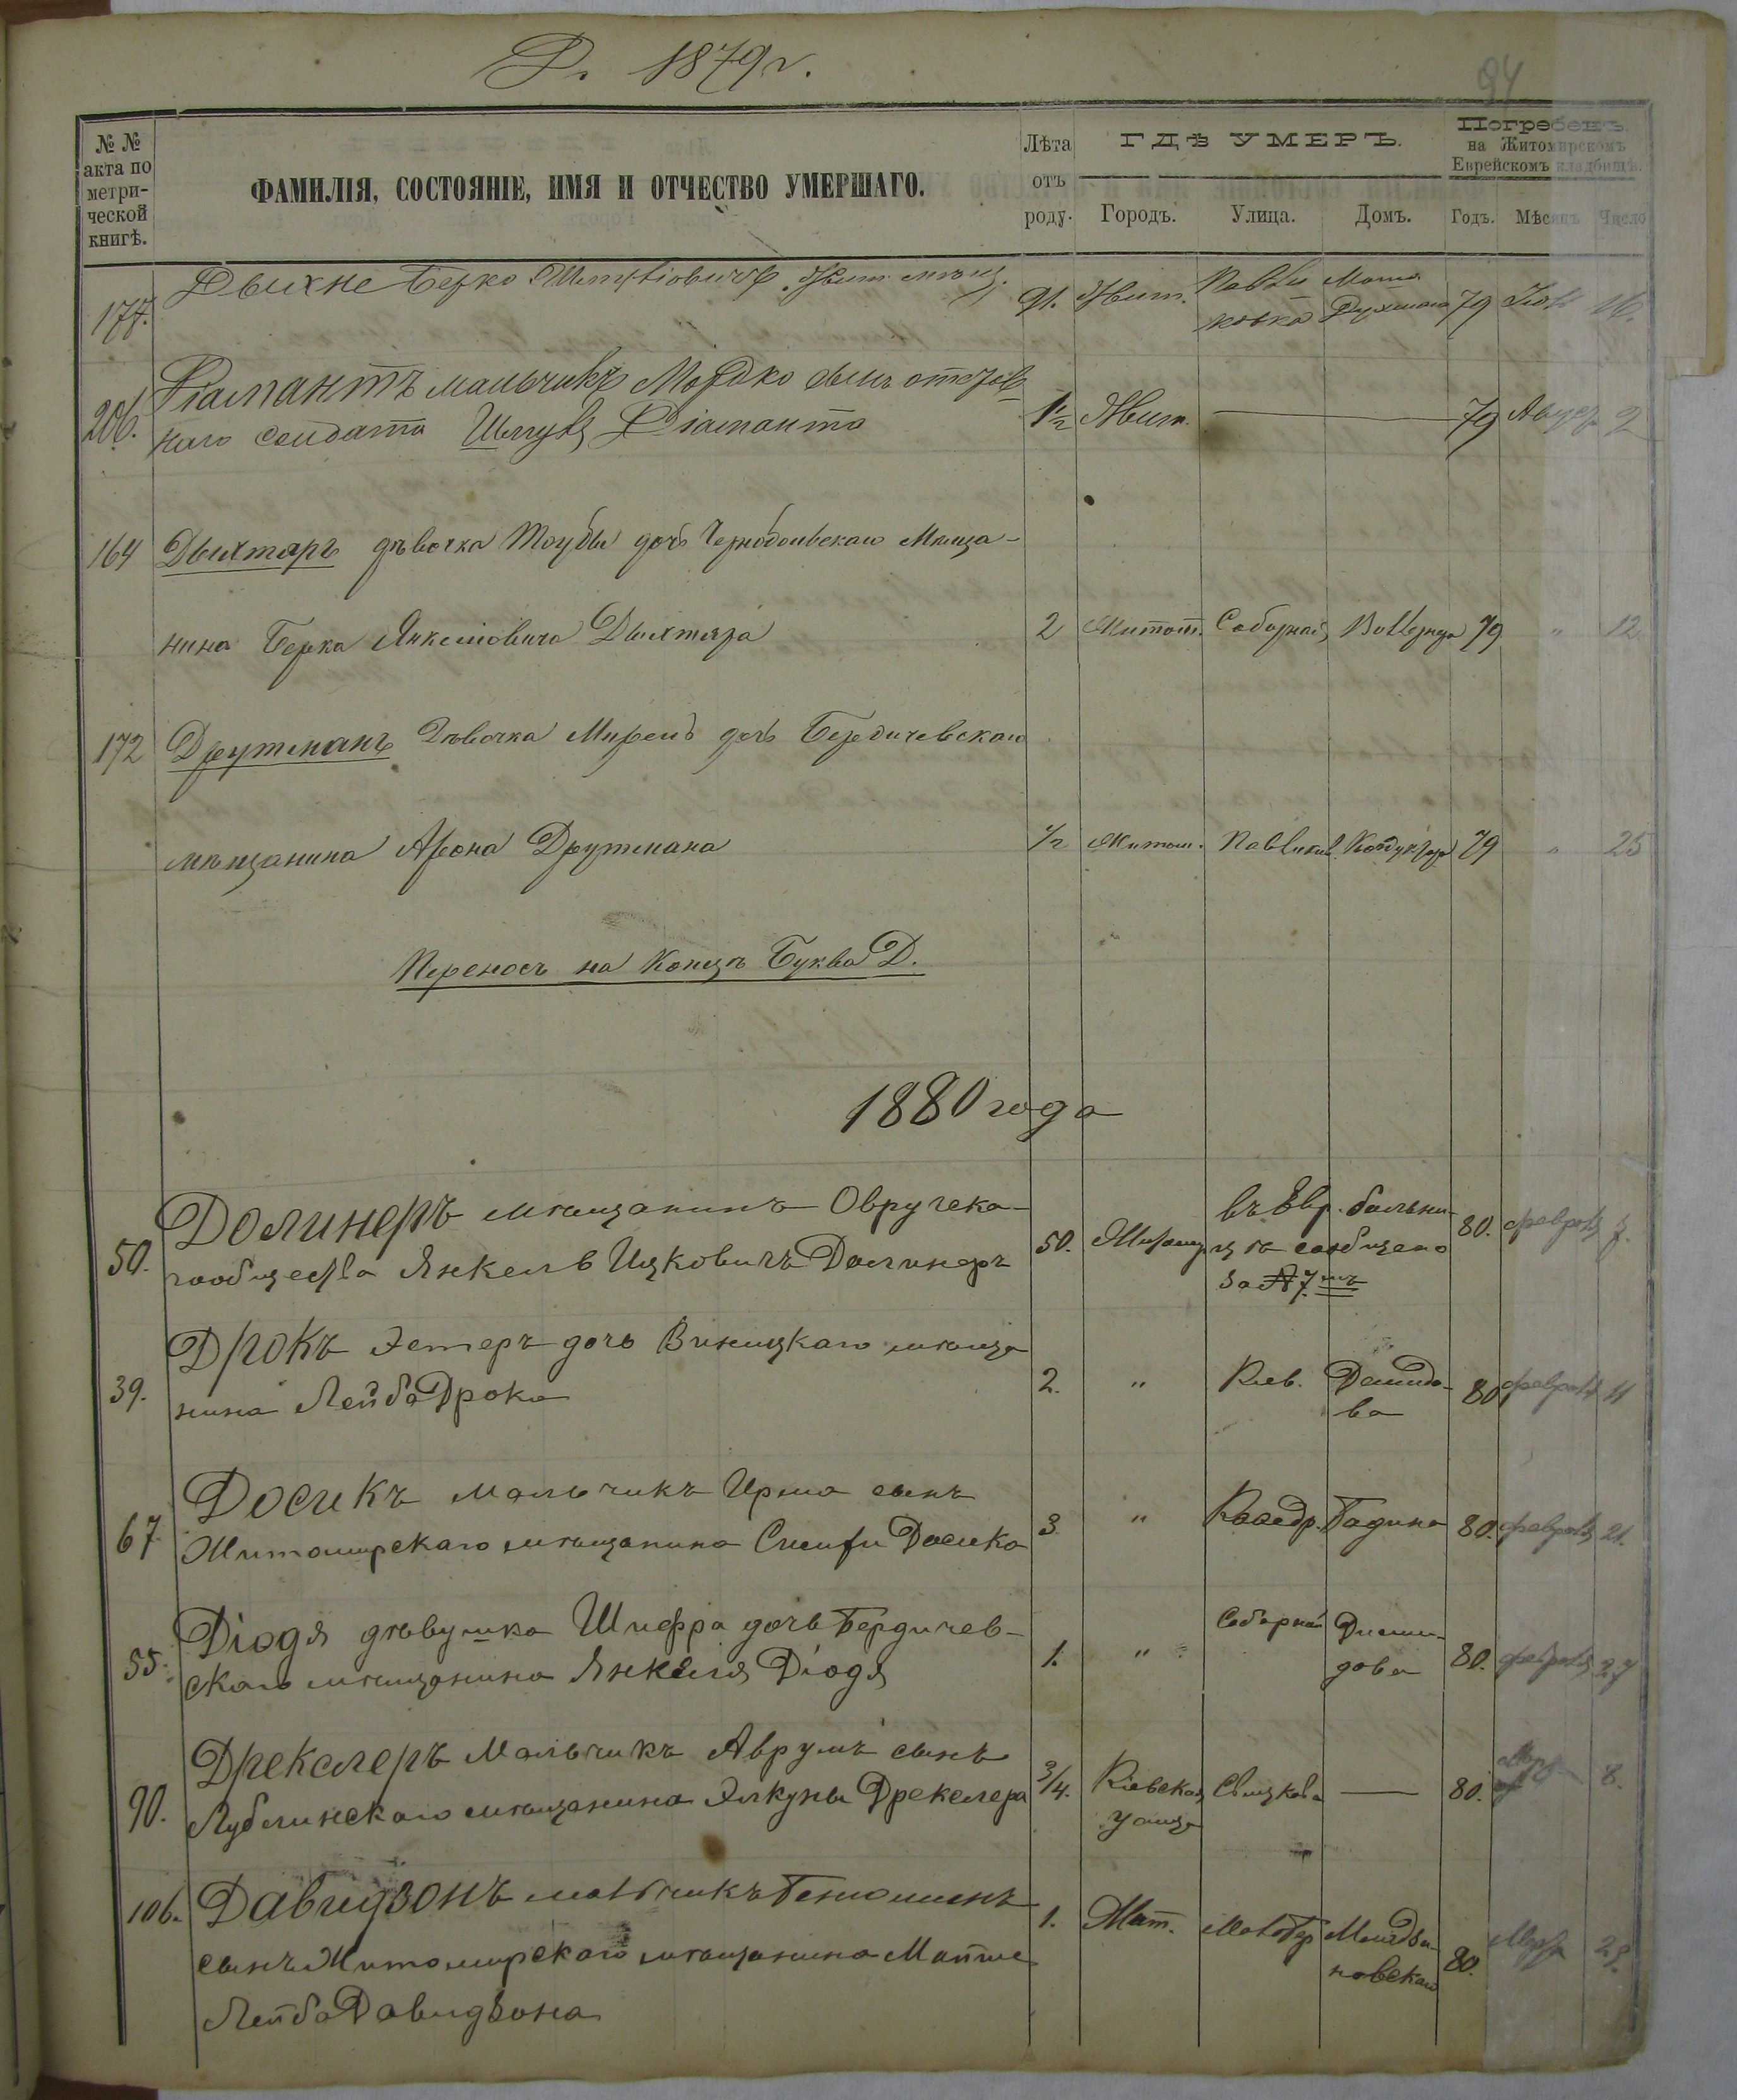 Д. 1879 г.
94
№ №
акта по
метри-
ческой
книгѣ.
ФАМИЛІЯ, СОСТОЯНІЕ, ИМЯ И ОТЧЕСТВО УМЕРШАГО.
Лѣта
отъ
роду.
ГДѢ УМЕРЪ.
Городъ. Улица. Домъ.
Погребенъ
на Житомирскомъ
Еврейскомъ кладбищѣ.
Годъ. Мѣсяцъ Число
177. Двихне Берко Жит. мѣщ. 91. Жит. 79 16.
206. Діамантъ мальчикъ Мордко сынъ отстав
наго солдата Шмуля Діаманта 1½ Жит. — 79 Авгус. 2
164 Дыхтяръ дѣвочка Тоубы дочь Чернобыльскаго Мѣща-
нина Берка Янкелювича Дыхтяра 2 Житом. Соборная 79 " 12
172 Друтманъ Дѣвочка Мирель дочь Бердичевскаго
мѣщанина Арона Друтмана ½ Житом. Кондуктор 79 " 25
Переносъ на Конецъ Буква Д.
1880 года
50. Долинеръ мѣщанинъ Овручска-
гообщества Янкель Ицковичъ Долинеръ 50. Житомир
въ Евр. больни-
цѣ сообщено
за № 7мъ
80. февраля 7.
39. Дрокъ Эстеръ дочь Виницкаго мѣща
нина Лейба Дрока 2. " Кіев. Демидо-
ва 80 февраля 11
67 Досикъ мальчикъ Ирма сынъ
Житомирскаго мѣщанина Досика 3. " Каѳедр. Бадина 80. февраля 21.
55. Діодя дѣвушка Шифра дочь Бердичев-
скаго мѣщанина Янкеля Діодя 1. " Соборной
дова 80. февраля 27
90. Дрекслеръ Мальчикъ Аврумъ сынъ
Лублинскаго мѣщанина Элкуны Дрекслера 3/4. Кіевская
улица — 80. 8.
106. Давидзонъ мальчикъ Беніоминъ
сынъ Житомирскаго мѣщанина
Лейба Давидзона
1. Жит. 80. Март 29.